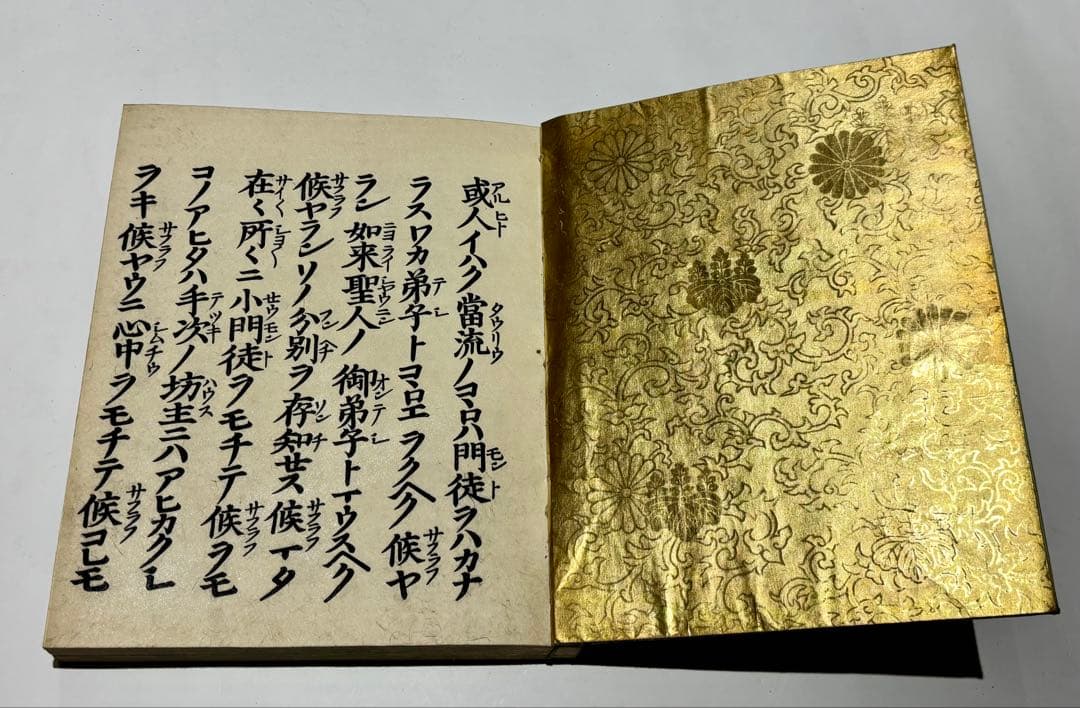 或人イハク當流ノコヽロハ門徒ヲハカナ
ラスワカ弟子トコヽロエヲクヘク候ヤ
ラン如来聖人ノ御弟子トマウスヘク
候ヤランソノ分別ヲ存知セス候マタ
在〻所〻ニ小門徒ヲモチテ候ヲモ
コノアヒタハ手次ノ坊主ニハアヒカクシ
ヲキ候ヤウニ心中ヲモチテ候コレモ